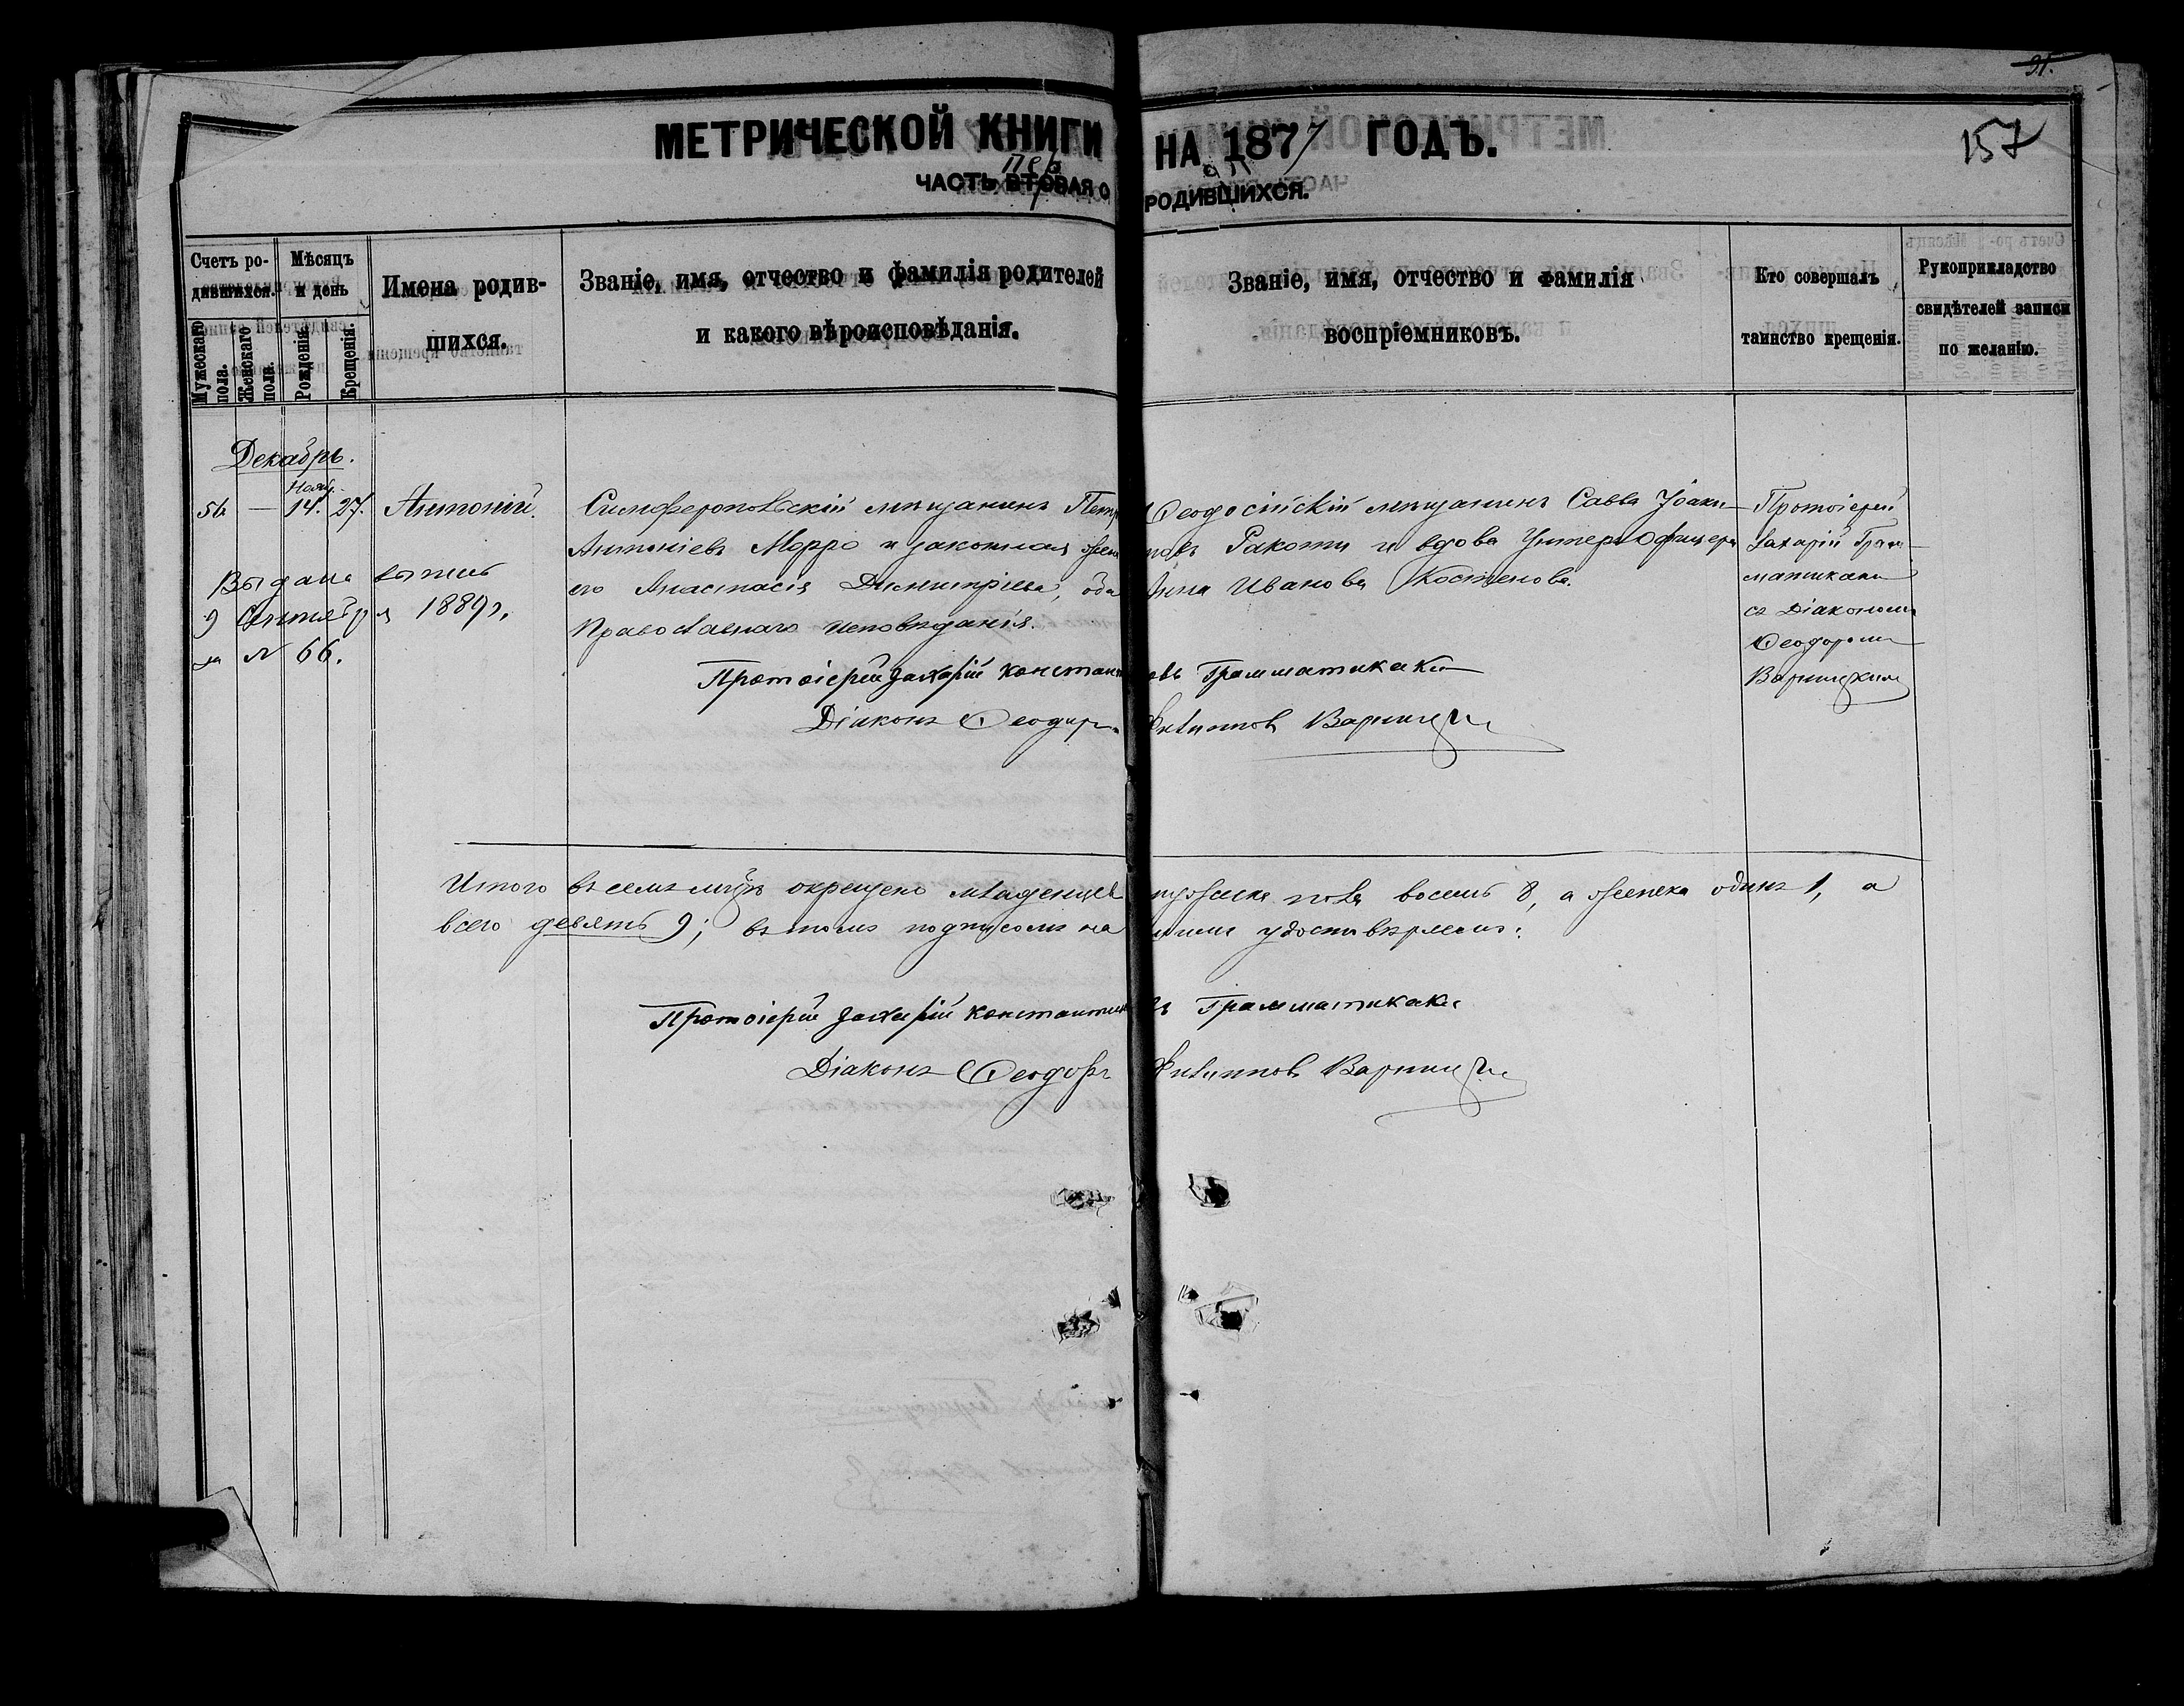 91.
157
МЕТРИЧЕСКОЙ КНИГИ НА 1877 ГОДЪ.
ЧАСТЬ ВТОРАЯ О РОДИВШИХСЯ.
пер
Счетъ родившихся.
Мужескаго пола.
Женскаго пола.
Мѣсяцъ и день
Рожденія.
Крещенія.
Имена родившихся.
Званіе, имя, отчество и фамилія родителей
и какого вѣроисповѣданія.
Званіе, имя, отчество и фамилія
воспріемниковъ.
Кто совершалъ
таинство крещенія.
Рукоприкладство
свидѣтелей записи
по желанію.
Декабрь.
Нояб.
— 14. 27. Антоній.
Выдана выпись
9 Сентября 1889 г.
за № 66.
Симферопольскій мѣщанинъ Петр
Антоніевъ Морро и законная жена
его Анастасія Димитріева, оба
Православнаго исповѣданія.
Ѳеодосійскій мѣщанинъ Савва Іоаки-
мовъ Ракоти и вдова Унтеръ Офицера
Анна Иванова Костенова.
Протоіерей
Захарій Грам-
матикаки
съ Діакономъ
Ѳеодоромъ
Протоіерей Захарій Константиновъ Грамматикаки
Діаконъ Ѳеодоръ Филиппов
Итого въ семъ мѣсяцѣ окрещено младенцевъ мужеска пола восемь 8, а женска одинъ 1, а
всего девять 9; въ томъ подписомъ нашимъ удостовѣряемъ:
Протоіерей Захарій Константиновъ Грамматикаки
Діаконъ Ѳеодоръ Филиппов